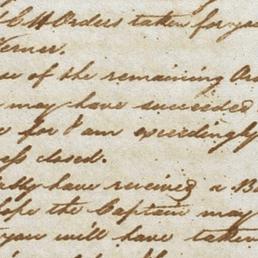 C H Orders taken for you
Verner.
se of the remaining Or
may have succeeded
e for I am exceedingly
ess closed.
ably have received a B
lope the Captain may
you will have taken